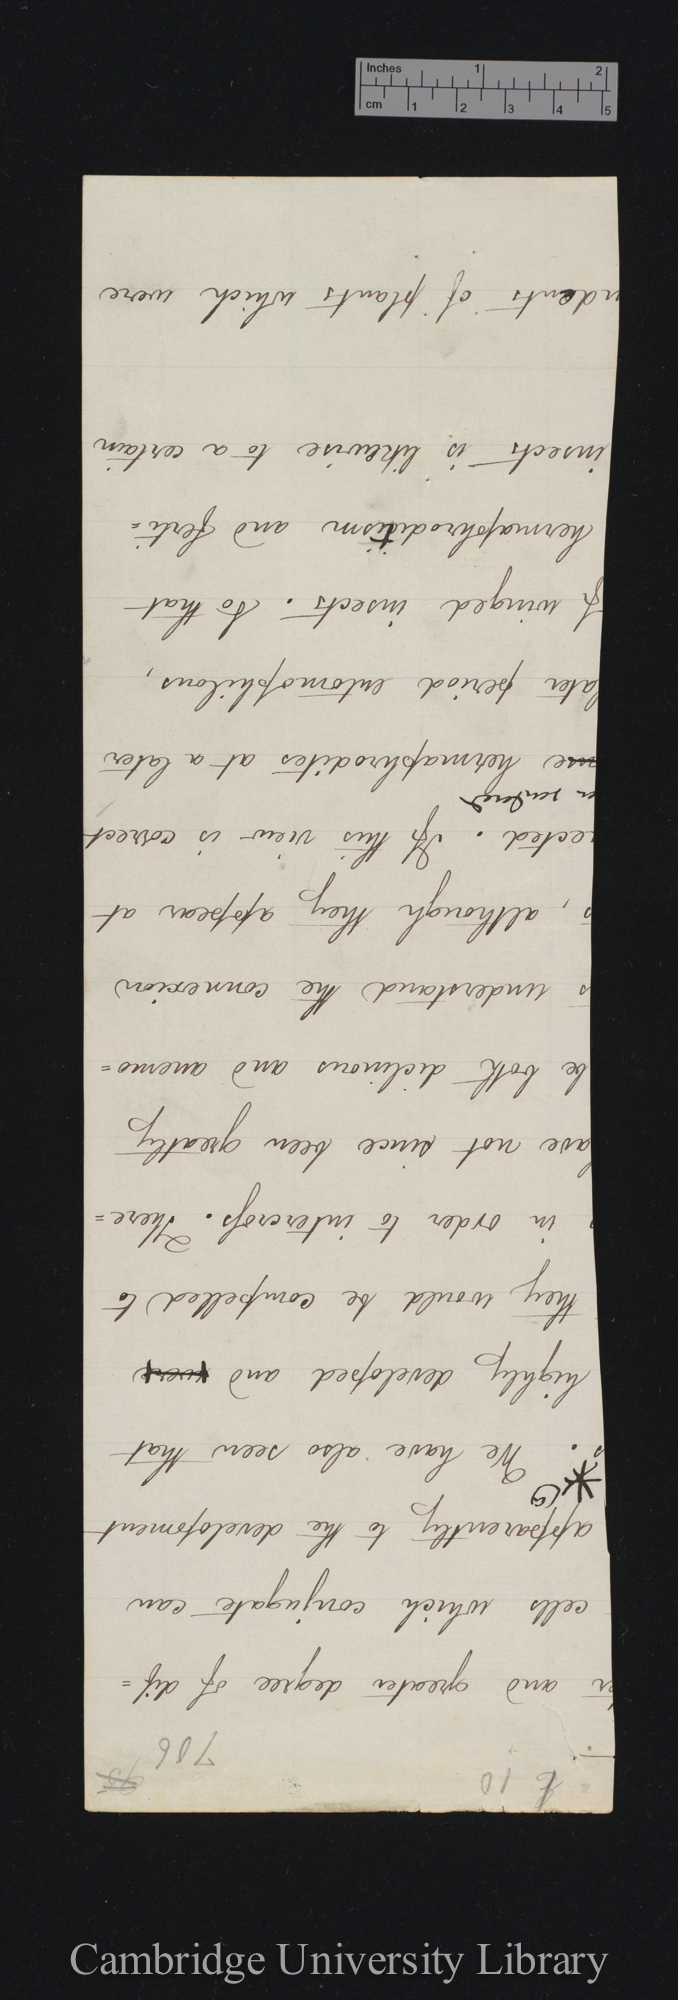 Inches 1 2
cm 1 2 3 4 5
£ 10
95
706
and greater degree of dif=
cells which conjugate can
apparently to the development
We have also seen that
highly developed and were
they would be compelled to
in order to intercross. There=
ave not since been greatly
be both diclinous and anemo=
s understand the connexion
s, although they appear at
ected. If this view is correct
n rendered
me hermaphrodites at a later
later period entomophilous,
of winged insects. So that
hermaphroditism and ferti=
insects is likewise to a certain
ndents of plants which were
Cambridge University Library